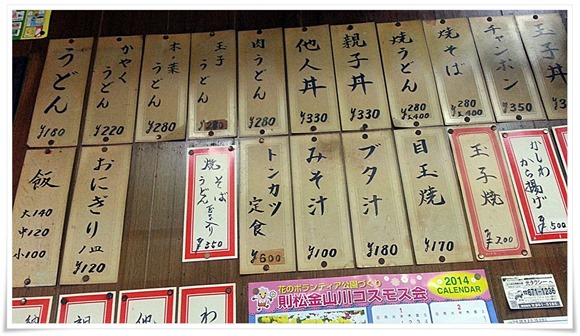 うどん
¥180
かやくうどん
¥220
木ノ葉うどん
¥280
玉子うどん
¥280
肉うどん
¥280
他人丼
¥330
親子丼
¥330
焼うどん
¥280
¥400
焼そば
¥280
¥400
チャンポン
¥350
玉子丼
飯
大140
中120
小100
おにぎり
1皿
¥120
焼そば
うどん
¥350
トンカツ定食
¥600
みそ汁
¥100
ブタ汁
¥180
目玉焼
¥170
玉子焼
¥200
かしわから揚げ
¥500
花のボランティア公園づくり
則松金山川コスモス会
2014
CALENDAR
671-1236